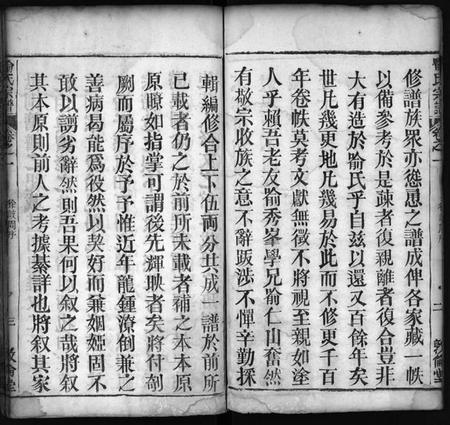 修譜族眾亦慫恿之譜成俾各家藏一帙
以備參考於是疎者復親離者復合豈非
大有造於喻氏乎自茲以還又百餘年矣
世凡幾更地凡幾易於此而不修更千百
年卷帙莫考文獻無徵不將視至親如塗
人乎賴吾老友喻秀峯學兄喻仁山奮然
有敬宗收族之意不辭跋涉不憚辛勤採
輯編修合上下伍兩分共成一譜於前所
已載者仍之於前所未載者補之本本原
原瞭如指掌可謂後先輝映者矣將付剞
劂而屬序於予予惟近年龍鍾潦倒兼之
善病曷能為役然以契好而兼姻婭固不
敢以譾劣辭然則吾果何以叙之哉將叙
其本原則前人之考據綦詳也將叙其家
喻氏宗譜
卷之一
二
敦倫堂
喻氏宗譜
卷之一
三
敦倫堂